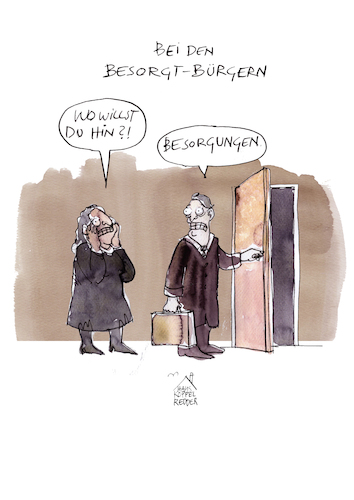 BEI DEN
BESORGT-BÜRGERN
WO WILLST
DU HIN?!
BESORGUNGEN
KOPPEL
REDDER